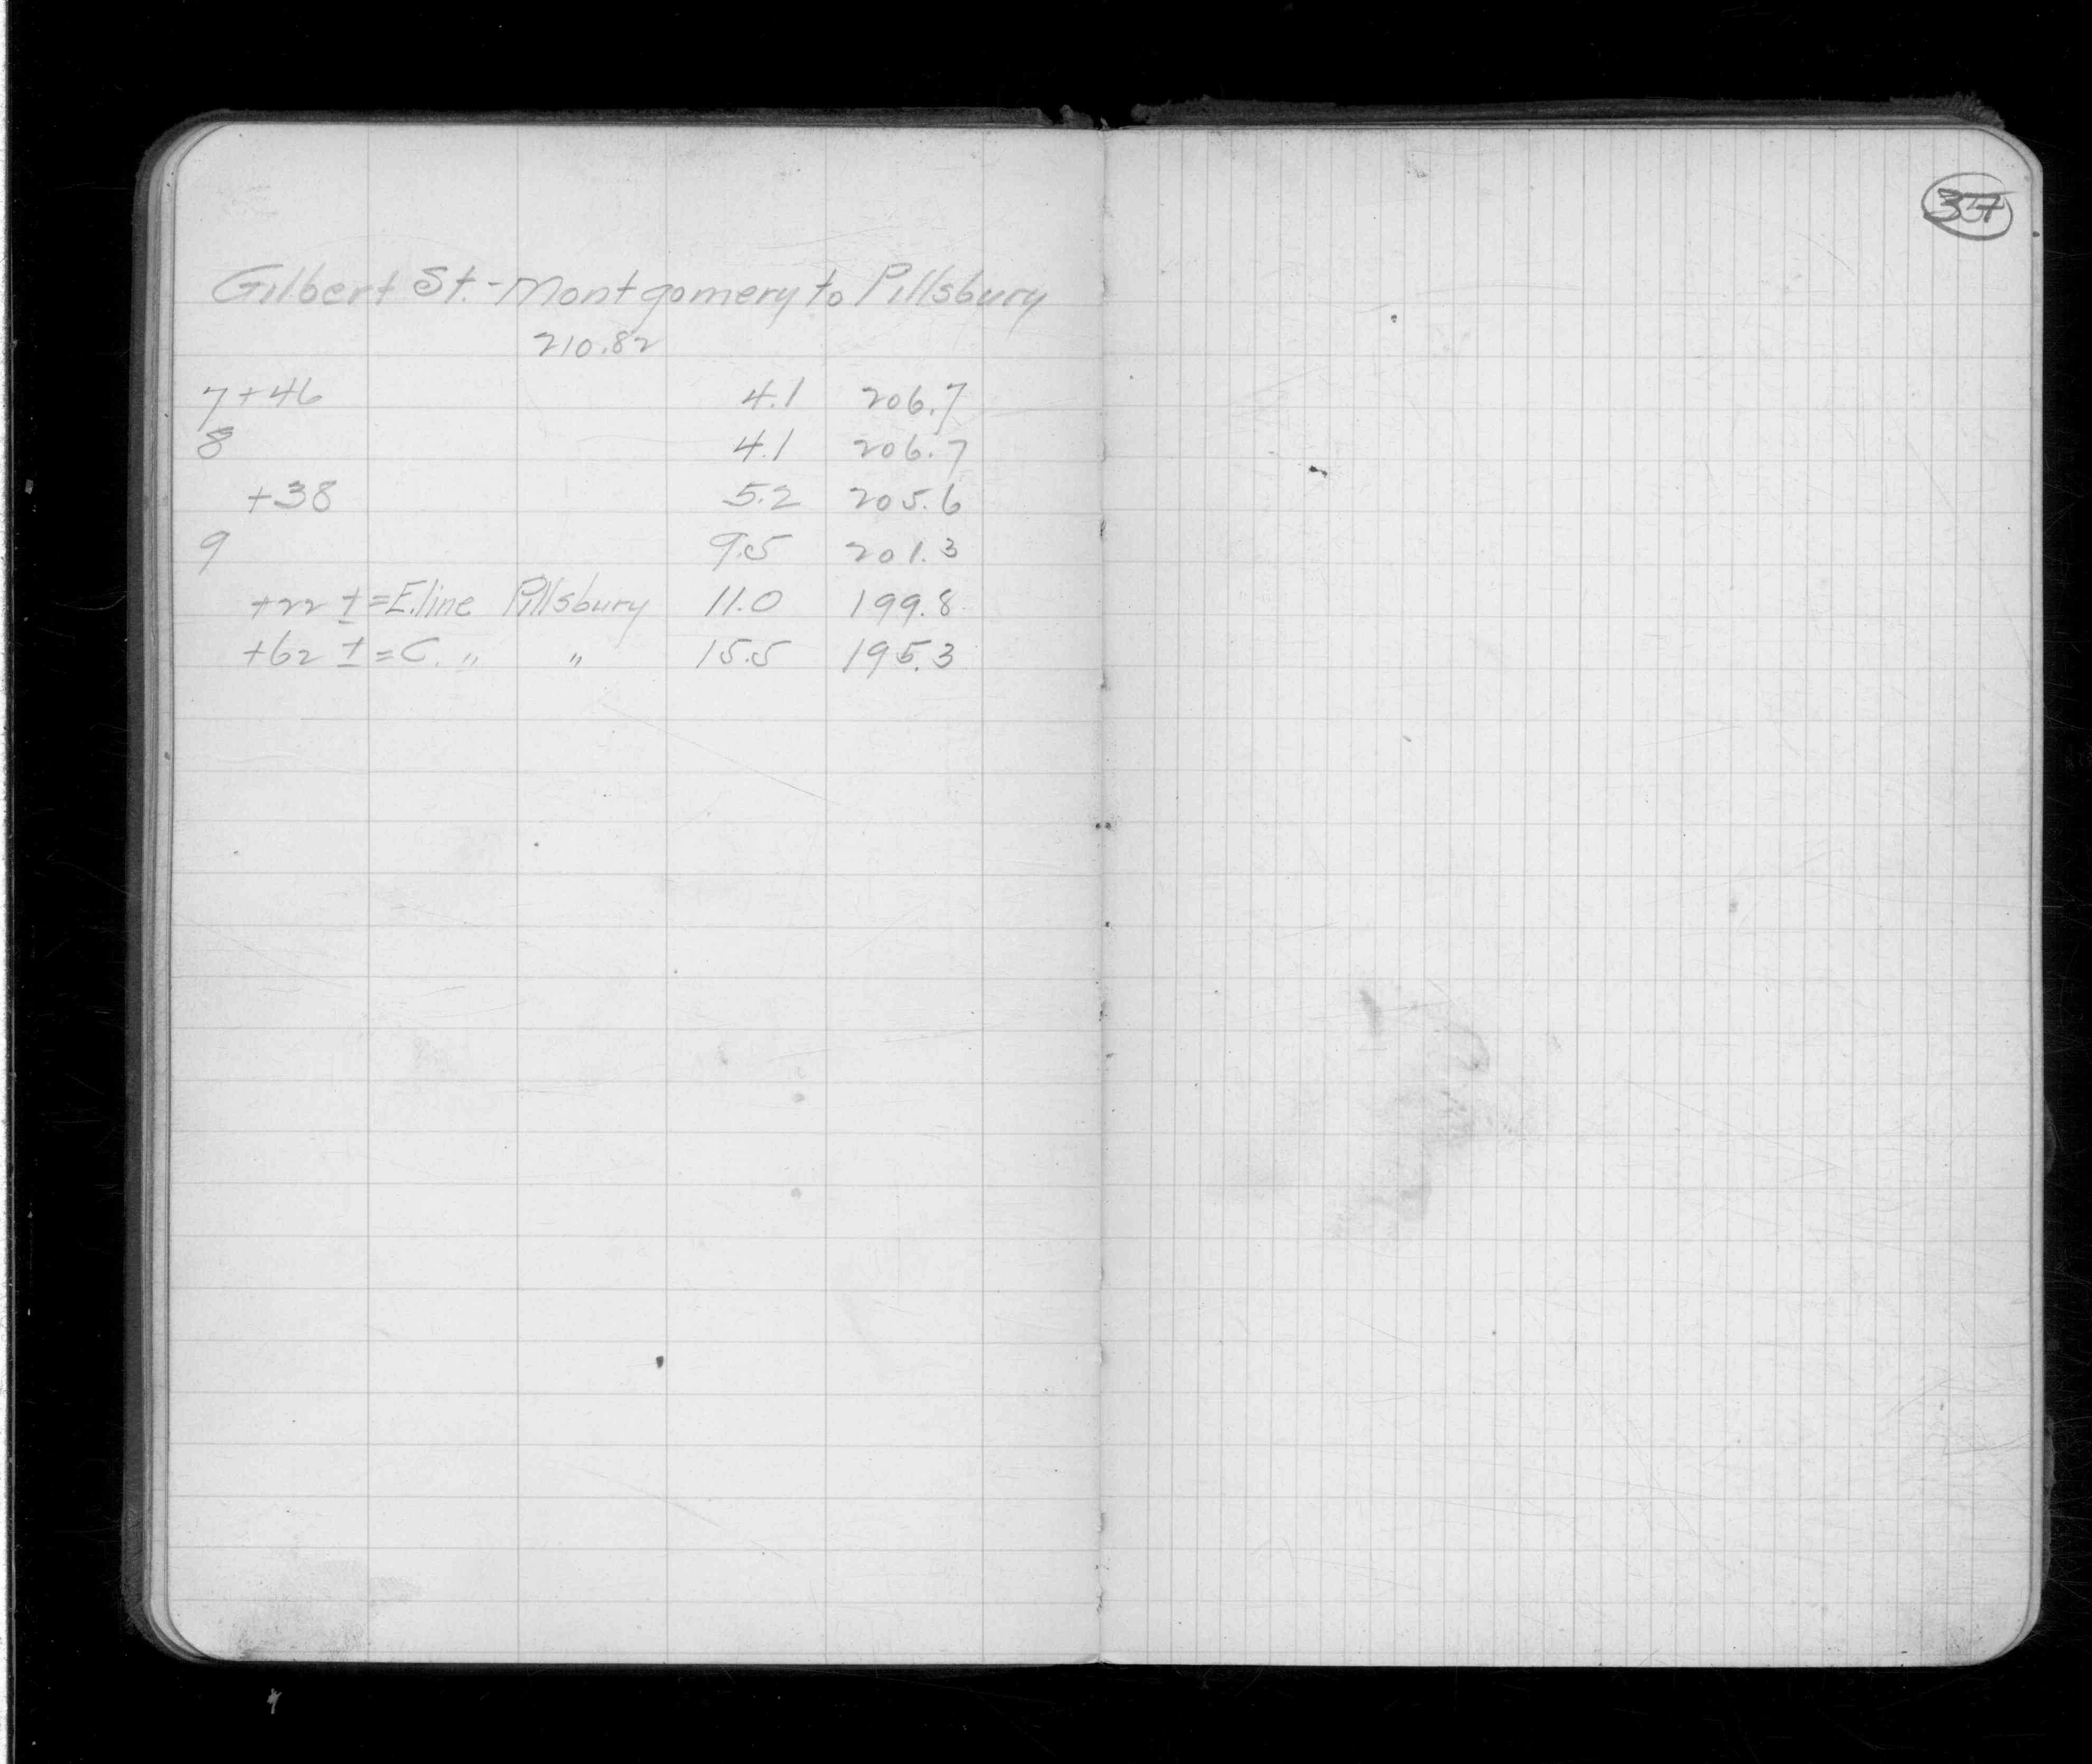 37
Gilbert St.-Montgomery to Pillsbury
210.82
7+46 4.1 206.7
8 4.1 206.7
+38 5.2 205.6
9 9.5 201.3
+22 ± = E. line Pillsbury 11.0 199.8
+62 ± = C. " " 15.5 195.3